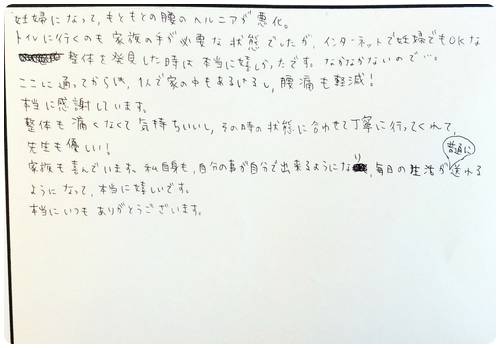 妊婦になって、もともとの腰のヘルニアが悪化。
トイレに行くのも家族の手が必要な状態でしたが、インターネットで妊婦でもOKな
整体を発見した時は本当に嬉しかったです。なかなかないので…。
ここに通ってからは、1人で家の中もあるけるし、腰痛も軽減!
本当に感謝しています。
整体も痛くなくて気持ちいいし、その時の状態に合わせて丁寧に行ってくれて、
先生も優しい!
家族も喜んでいます。私自身も、自分の事が自分で出来るようになり、毎日の生活が普通に送れる
ようになって、本当に嬉しいです。
本当にいつもありがとうございます。